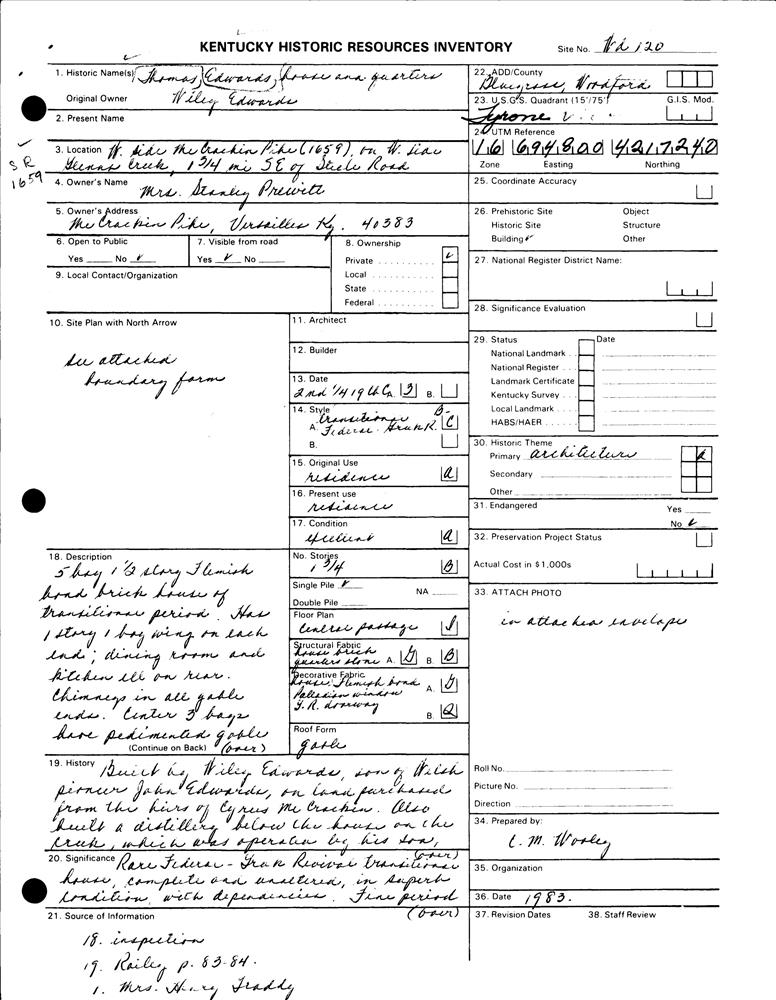 KENTUCKY HISTORIC RESOURCES INVENTORY
Site No. Wd 120
1. Historic Name(s) Thomas Edwards house and quarters
Original Owner Wiley Edwards
2. Present Name
3. Location W. side McCrackin Pike (1659), on W. side
Glenns Creek, 1 3/4 mi SE of Steele Road
SR
1659
4. Owner's Name
Mrs. Stanley Prewitt
5. Owner's Address
McCrackin Pike, Versailles Ky. 40383
6. Open to Public
Yes No ✓
7. Visible from road
Yes ✓ No
8. Ownership
Private ✓
Local
State
Federal
9. Local Contact/Organization
10. Site Plan with North Arrow
see attached
boundary form
11. Architect
12. Builder
13. Date
2nd 1/4 19th C A. 3 B.
14. Style
transitional B-
A. Federal-Greek R. C
B.
15. Original Use
residence a
16. Present use
residence
17. Condition
excellent a
18. Description
5 bay 1 1/2 story Flemish
bond brick house of
transitional period. Has
1 story 1 bay wing on each
end; dining room and
kitchen ell on rear.
Chimneys in all gable
ends. Center 3 bays
have pedimented gable
(Continue on Back) (over)
No. Stories
1 3/4 B
Single Pile ✓ NA
Double Pile
Floor Plan
central passage
Structural Fabric
house brick
quarters stone A. G B. B
Decorative Fabric
house: Flemish bond A. G
Palladian window
G.R. doorway
B. Q
Roof Form
gable
19. History Built by Wiley Edwards, son of Welsh
pioneer John Edwards, on land purchased
from the heirs of Cyrus McCrackin. Also
built a distillery below the house on the
creek, which was operated by his son,
(over)
20. Significance Rare Federal-Greek Revival transitional
house, complete and unaltered, in superb
condition, with dependencies. Fine period
(over)
21. Source of Information
18. inspection
19. Railey p. 83-84.
1. Mrs. Henry Graddy
22. ADD/County
Bluegrass, Woodford
23. U.S.G.S. Quadrant (15'/75') G.I.S. Mod.
Tyrone
24. UTM Reference
16 694800 4217240
Zone Easting Northing
25. Coordinate Accuracy
26. Prehistoric Site Object
Historic Site Structure
Building ✓ Other
27. National Register District Name:
28. Significance Evaluation
29. Status Date
National Landmark
National Register
Landmark Certificate
Kentucky Survey
Local Landmark
HABS/HAER
30. Historic Theme
Primary architecture a
Secondary
Other
31. Endangered Yes
No ✓
32. Preservation Project Status
Actual Cost in $1,000s
33. ATTACH PHOTO
in attached envelope
Roll No.
Picture No.
Direction
34. Prepared by:
C. M. Wooley
35. Organization
36. Date 1983.
37. Revision Dates 38. Staff Review